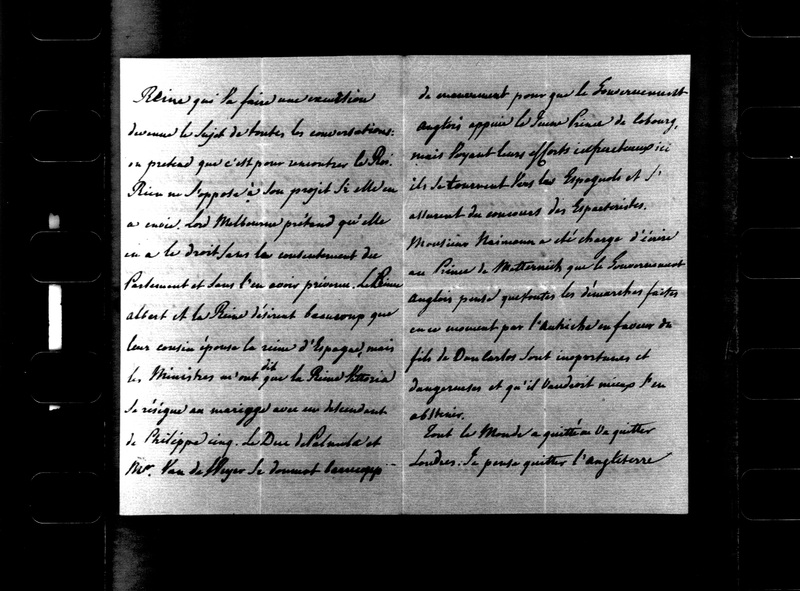 Reine qui va faire une excursion
devenue le sujet de toutes les conversations:
on pretend que c'est pour rencontrer le Roi.
Rien ne s'oppose à son projet si elle en
a envie. Lord Melbourne prétend qu'elle
en a le droit sans le consentement du
Parlement et sans l'en avoir prévenu. Le Prince
albert et la Reine désirent beaucoup que
leur cousin épouse la reine d'Espagne, mais
les Ministres m'ont dit que la Reine Vittoria
se résigne au mariage avec un descendant
de Philippe cinq. Le Duc de Palmela et
Mr. Van de Weyer se donnent beaucoup
de mouvement pour que le Gouvernement
anglois appuie le Jeune Prince de Cobourg,
mais voyant leurs efforts infructueux ici
ils se tournent vers les Espagnols et s'
assurent du concours des Esparteristes.
Monsieur Neumann a été chargé d'écrire
au Prince de Metternich que le Gouvernement
anglois pense que toutes les démarches faites
en ce moment par l'Autriche en faveur du
fils de Don Carlos sont inoportunes et
dangereuses et qu'il vaudroit mieux s'en
abstenir.
Tout le Monde a quitté ou va quitter
Londres. Je pense quitter l'angleterre